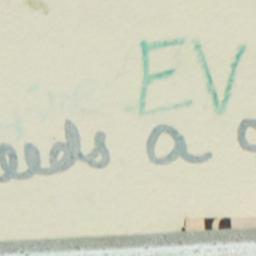 EV
eeds a